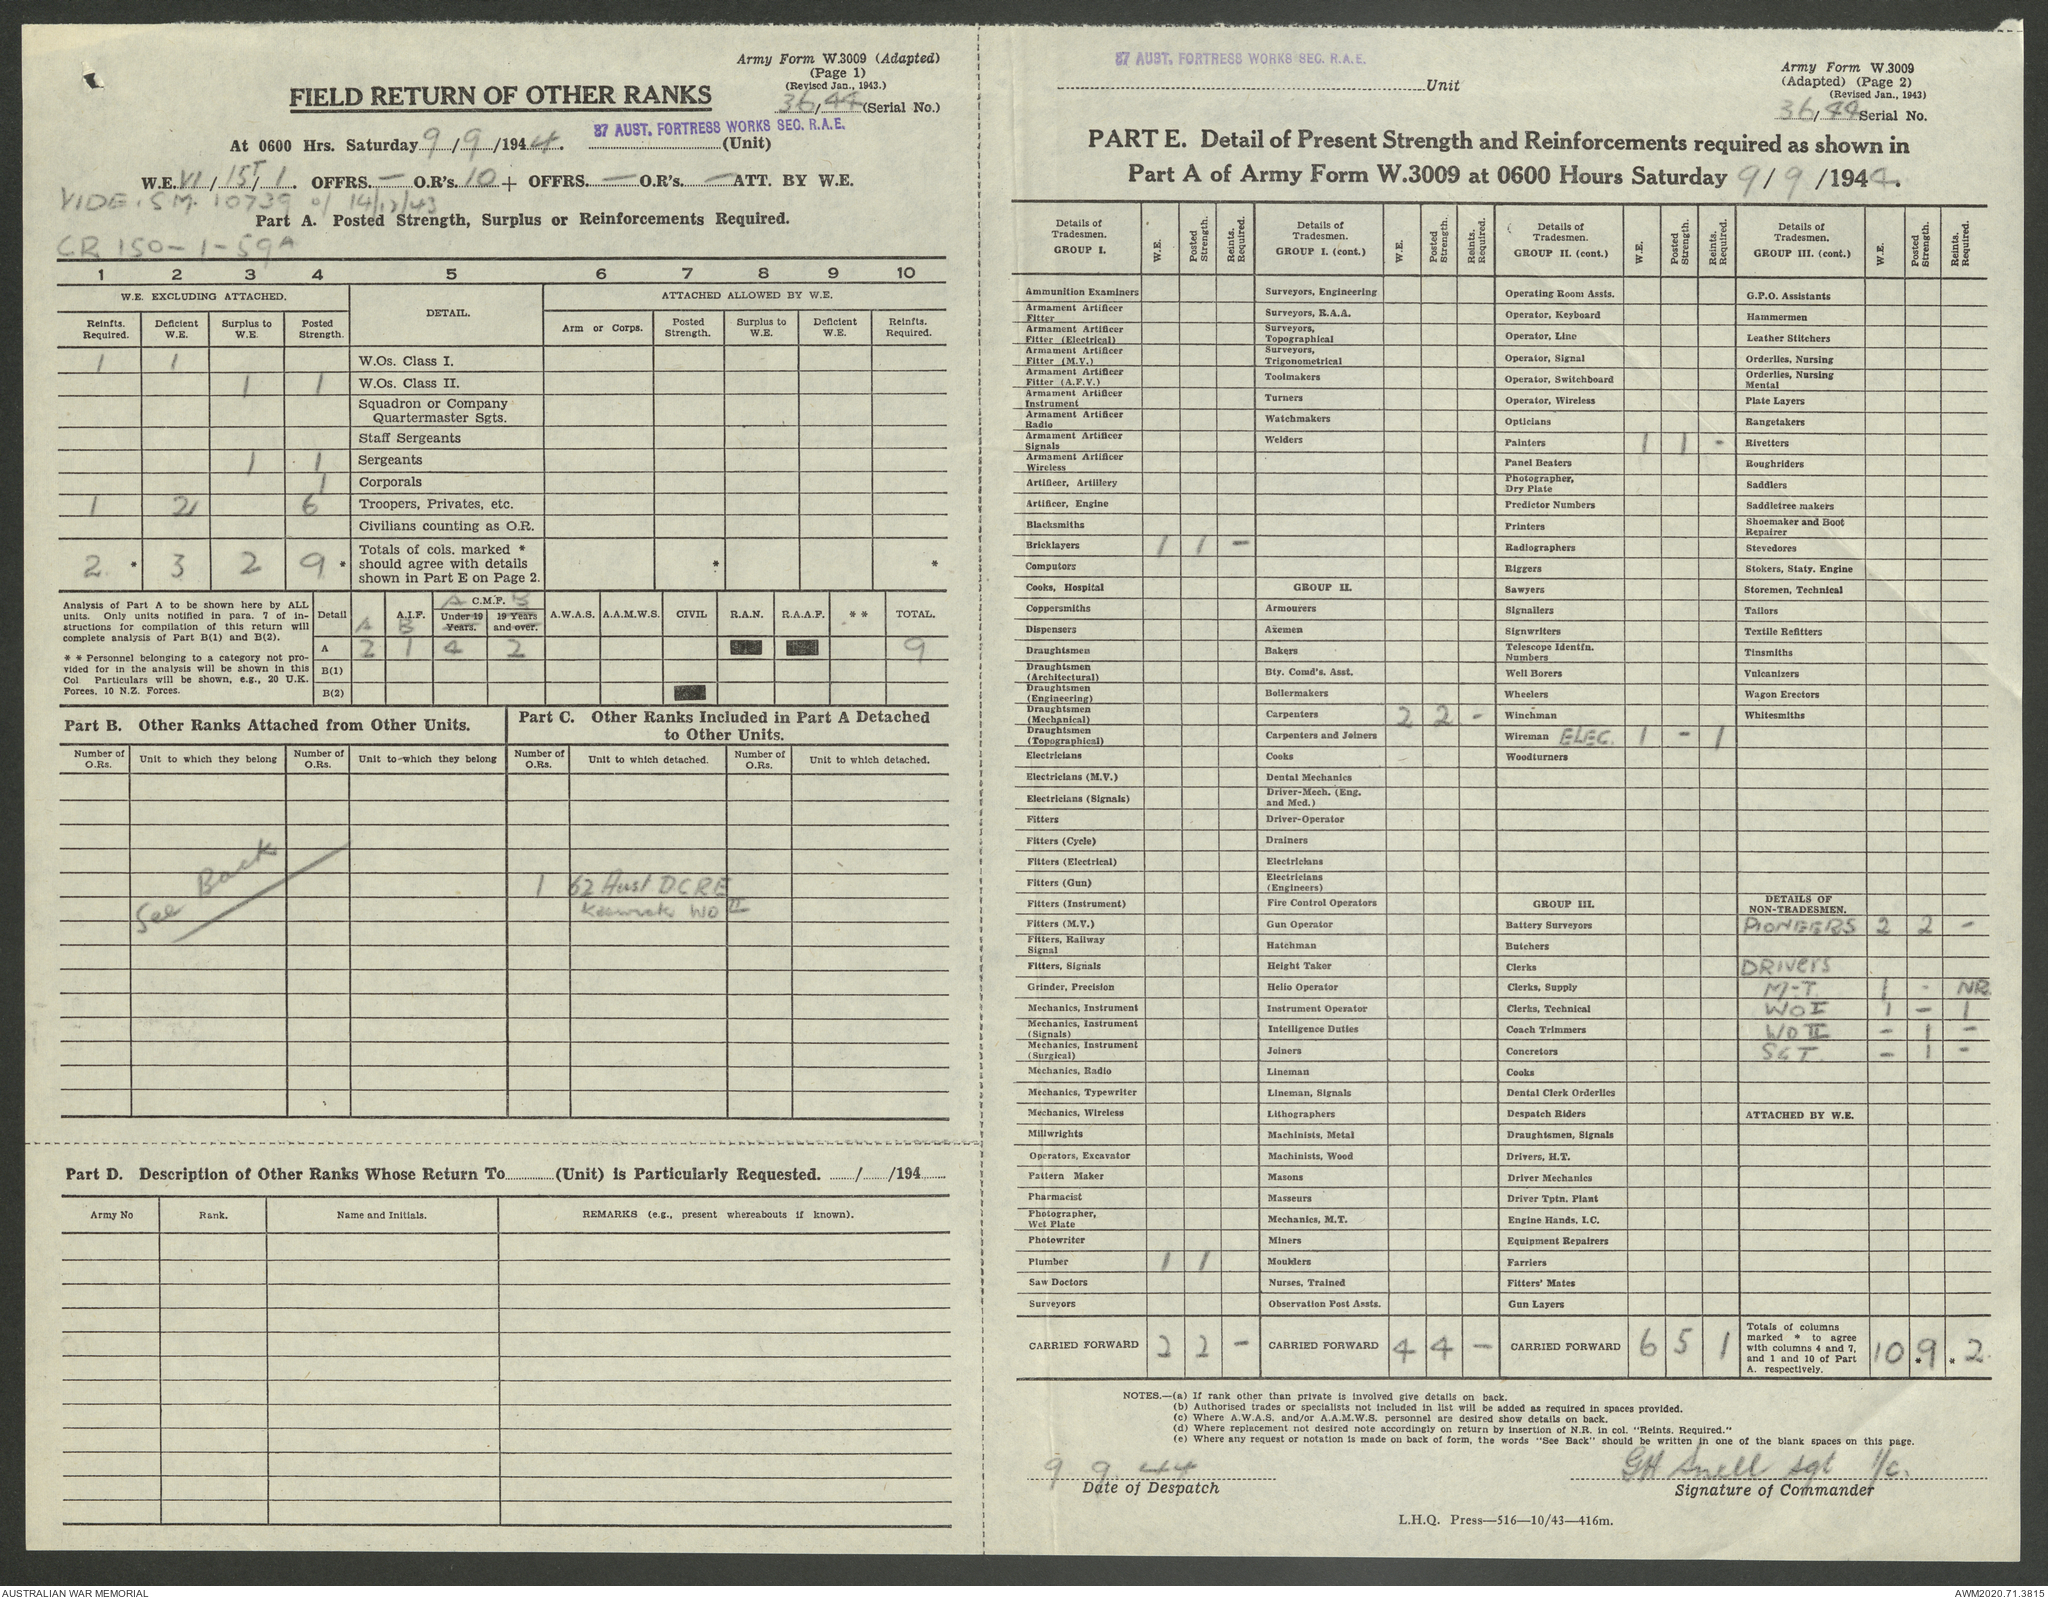 Army Form W.3009 (Adapted)
(Page 1)
(Revised Jan., 1943.)
FIELD RETURN OF OTHER RANKS
36/44 (Serial No.)
At 0600 Hrs. Saturday 9/9/1944. 87 AUST. FORTRESS WORKS SEC. R.A.E. (Unit)
W.E. VI/15T/1. OFFRS. — O.R's. 10 + OFFRS. — O.R's. — ATT. BY W.E.
VIDE. S.M. 10739 of 14/12/43
Part A. Posted Strength, Surplus or Reinforcements Required.
CR 150-1-59A
1 2 3 4 5 6 7 8 9 10
W.E. EXCLUDING ATTACHED. DETAIL. ATTACHED ALLOWED BY W.E.
Reinfts. Required. Deficient W.E. Surplus to W.E. Posted Strength. Arm or Corps. Posted Strength. Surplus to W.E. Deficient W.E. Reinfts. Required.
1 1 W.Os. Class I.
1 1 W.Os. Class II.
Squadron or Company Quartermaster Sgts.
Staff Sergeants
1 1 Sergeants
1 Corporals
1 2 6 Troopers, Privates, etc.
Civilians counting as O.R.
2 * 3 2 9 * Totals of cols. marked * should agree with details shown in Part E on Page 2. * *
Analysis of Part A to be shown here by ALL units. Only units notified in para. 7 of instructions for compilation of this return will complete analysis of Part B(1) and B(2).
* * Personnel belonging to a category not provided for in the analysis will be shown in this Col. Particulars will be shown, e.g., 20 U.K. Forces, 10 N.Z. Forces.
Detail A A.I.F. B C.M.F. A B Under 19 Years. 19 Years and over. A.W.A.S. A.A.M.W.S. CIVIL R.A.N. R.A.A.F. * * TOTAL.
A 2 1 4 2 9
B(1)
B(2)
Part B. Other Ranks Attached from Other Units.
Part C. Other Ranks Included in Part A Detached to Other Units.
Number of O.Rs. Unit to which they belong Number of O.Rs. Unit to which they belong Number of O.Rs. Unit to which detached. Number of O.Rs. Unit to which detached.
See Back
1 62 Aust DCRE
WO II
Part D. Description of Other Ranks Whose Return To (Unit) is Particularly Requested. / /194
Army No Rank. Name and Initials. REMARKS (e.g., present whereabouts if known).
87 AUST. FORTRESS WORKS SEC. R.A.E. Unit
Army Form W.3009
(Adapted) (Page 2)
(Revised Jan., 1943)
36/44 Serial No.
PART E. Detail of Present Strength and Reinforcements required as shown in
Part A of Army Form W.3009 at 0600 Hours Saturday 9/9/1944.
Details of Tradesmen. GROUP I. W.E. Posted Strength. Reints. Required.
Ammunition Examiners
Armament Artificer Fitter
Armament Artificer Fitter (Electrical)
Armament Artificer Fitter (M.V.)
Armament Artificer Fitter (A.F.V.)
Armament Artificer Instrument
Armament Artificer Radio
Armament Artificer Signals
Armament Artificer Wireless
Artificer, Artillery
Artificer, Engine
Blacksmiths
Bricklayers 1 1 -
Computors
Cooks, Hospital
Coppersmiths
Dispensers
Draughtsmen
Draughtsmen (Architectural)
Draughtsmen (Engineering)
Draughtsmen (Mechanical)
Draughtsmen (Topographical)
Electricians
Electricians (M.V.)
Electricians (Signals)
Fitters
Fitters (Cycle)
Fitters (Electrical)
Fitters (Gun)
Fitters (Instrument)
Fitters (M.V.)
Fitters, Railway Signal
Fitters, Signals
Grinder, Precision
Mechanics, Instrument
Mechanics, Instrument (Signals)
Mechanics, Instrument (Surgical)
Mechanics, Radio
Mechanics, Typewriter
Mechanics, Wireless
Millwrights
Operators, Excavator
Pattern Maker
Pharmacist
Photographer, Wet Plate
Photowriter
Plumber 1 1
Saw Doctors
Surveyors
CARRIED FORWARD 2 2 -
Details of Tradesmen. GROUP I. (cont.) W.E. Posted Strength. Reints. Required.
Surveyors, Engineering
Surveyors, R.A.A.
Surveyors, Topographical
Surveyors, Trigonometrical
Toolmakers
Turners
Watchmakers
Welders
GROUP II.
Armourers
Axemen
Bakers
Bty. Comd's. Asst.
Boilermakers
Carpenters 2 2 -
Carpenters and Joiners
Cooks
Dental Mechanics
Driver-Mech. (Eng. and Med.)
Driver-Operator
Drainers
Electricians
Electricians (Engineers)
Fire Control Operators
Gun Operator
Hatchman
Height Taker
Helio Operator
Instrument Operator
Intelligence Duties
Joiners
Lineman
Lineman, Signals
Lithographers
Machinists, Metal
Machinists, Wood
Masons
Masseurs
Mechanics, M.T.
Miners
Moulders
Nurses, Trained
Observation Post Assts.
CARRIED FORWARD 4 4 -
Details of Tradesmen. GROUP II. (cont.) W.E. Posted Strength. Reints. Required.
Operating Room Assts.
Operator, Keyboard
Operator, Line
Operator, Signal
Operator, Switchboard
Operator, Wireless
Opticians
Painters 1 1 -
Panel Beaters
Photographer, Dry Plate
Predictor Numbers
Printers
Radiographers
Riggers
Sawyers
Signallers
Signwriters
Telescope Identfn. Numbers
Well Borers
Wheelers
Winchman
Wireman ELEC. 1 - 1
Woodturners
GROUP III.
Battery Surveyors
Butchers
Clerks
Clerks, Supply
Clerks, Technical
Coach Trimmers
Concretors
Cooks
Dental Clerk Orderlies
Despatch Riders
Draughtsmen, Signals
Drivers, H.T.
Driver Mechanics
Driver Tptn. Plant
Engine Hands, I.C.
Equipment Repairers
Farriers
Fitters' Mates
Gun Layers
CARRIED FORWARD 6 5 1
Details of Tradesmen. GROUP III. (cont.) W.E. Posted Strength. Reints. Required.
G.P.O. Assistants
Hammermen
Leather Stitchers
Orderlies, Nursing
Orderlies, Nursing Mental
Plate Layers
Rangetakers
Rivetters
Roughriders
Saddlers
Saddletree makers
Shoemaker and Boot Repairer
Stevedores
Stokers, Staty. Engine
Storemen, Technical
Tailors
Textile Refitters
Tinsmiths
Vulcanizers
Wagon Erectors
Whitesmiths
DETAILS OF NON-TRADESMEN.
PIONEERS 2 2 -
DRIVERS
M-T 1 - NR
WO I 1 - 1
WO II - 1 -
SGT. - 1 -
ATTACHED BY W.E.
Totals of columns marked * to agree with columns 4 and 7, and 1 and 10 of Part A. respectively. 10 * 9 * 2
NOTES.—(a) If rank other than private is involved give details on back.
(b) Authorised trades or specialists not included in list will be added as required in spaces provided.
(c) Where A.W.A.S. and/or A.A.M.W.S. personnel are desired show details on back.
(d) Where replacement not desired note accordingly on return by insertion of N.R. in col. "Reints. Required."
(e) Where any request or notation is made on back of form, the words "See Back" should be written in one of the blank spaces on this page.
9 9. 44 GH Snell Sgt I/c.
Date of Despatch Signature of Commander
L.H.Q. Press—516—10/43—416m.
AUSTRALIAN WAR MEMORIAL AWM2020.71.3815